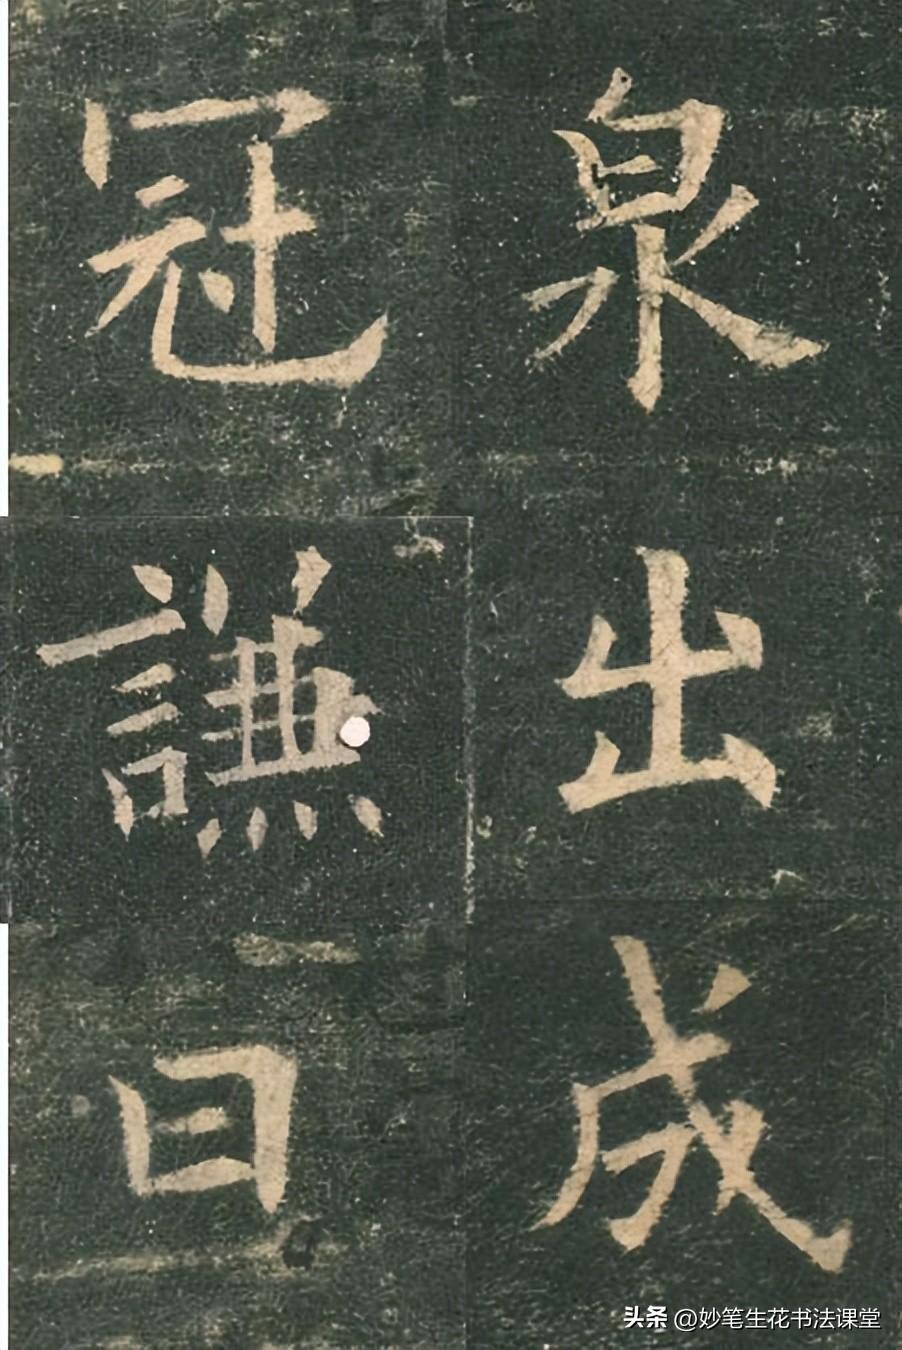 泉出成
冠謙日
头条 @妙笔生花书法课堂